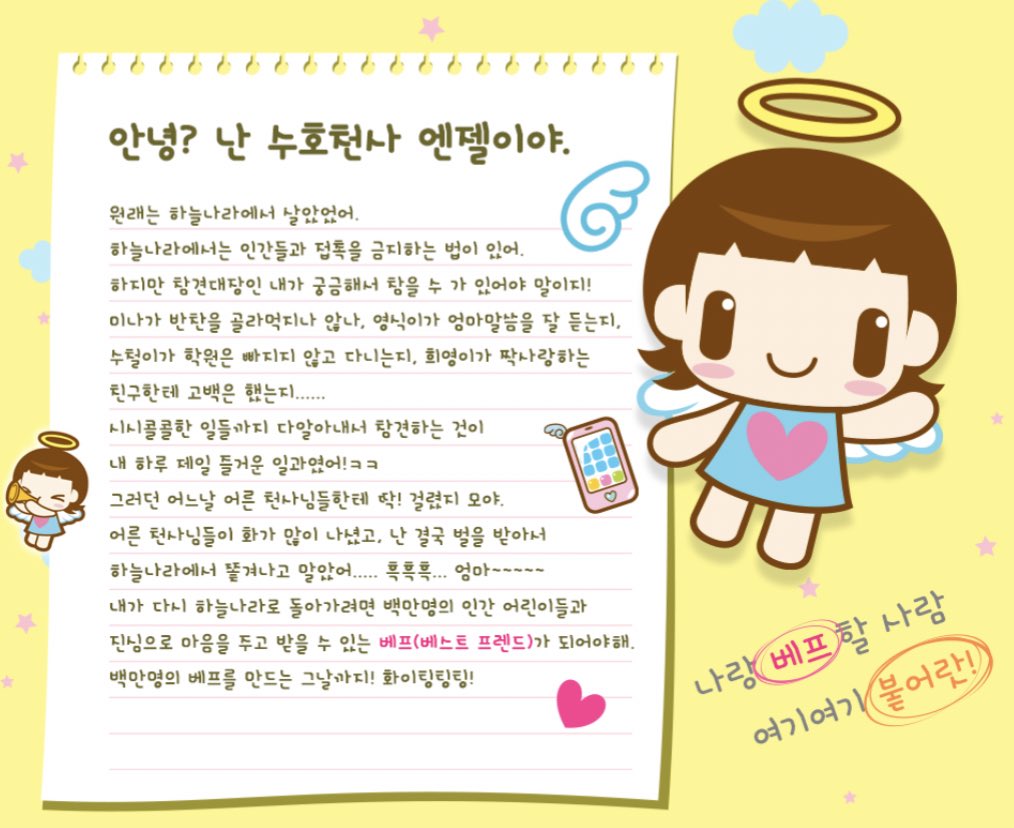 안녕? 난 수호천사 엔젤이야.
원래는 하늘나라에서 살았었어.
하늘나라에서는 인간들과 접촉을 금지하는 법이 있어.
하지만 참견대당인 내가 궁금해서 참을 수 가 있어야 말이지!
미나가 반찬을 골라먹지나 않나, 영식이가 엄마말씀을 잘 듣는지,
수철이가 학원은 빠지지 않고 다니는지, 희영이가 짝사랑하는
친구한테 고백은 했는지......
시시콜콜한 일들까지 다알아내서 참견하는 것이
내 하루 제일 즐거운 일과였어!ㅋㅋ
그러던 어느날 어른 천사님들한테 딱! 걸렸지 모야.
어른 천사님들이 화가 많이 나셨고, 난 결국 벌을 받아서
하늘나라에서 쫓겨나고 말았어..... 흑흑흑... 엄마~~~~~
내가 다시 하늘나라로 돌아가려면 백만명의 인간 어린이들과
진심으로 마음을 주고 받을 수 있는 베프(베스트 프렌드)가 되어야해.
백만명의 베프를 만드는 그날까지! 화이팅팅팅!
나랑 베프할 사람
여기여기 붙어랏!